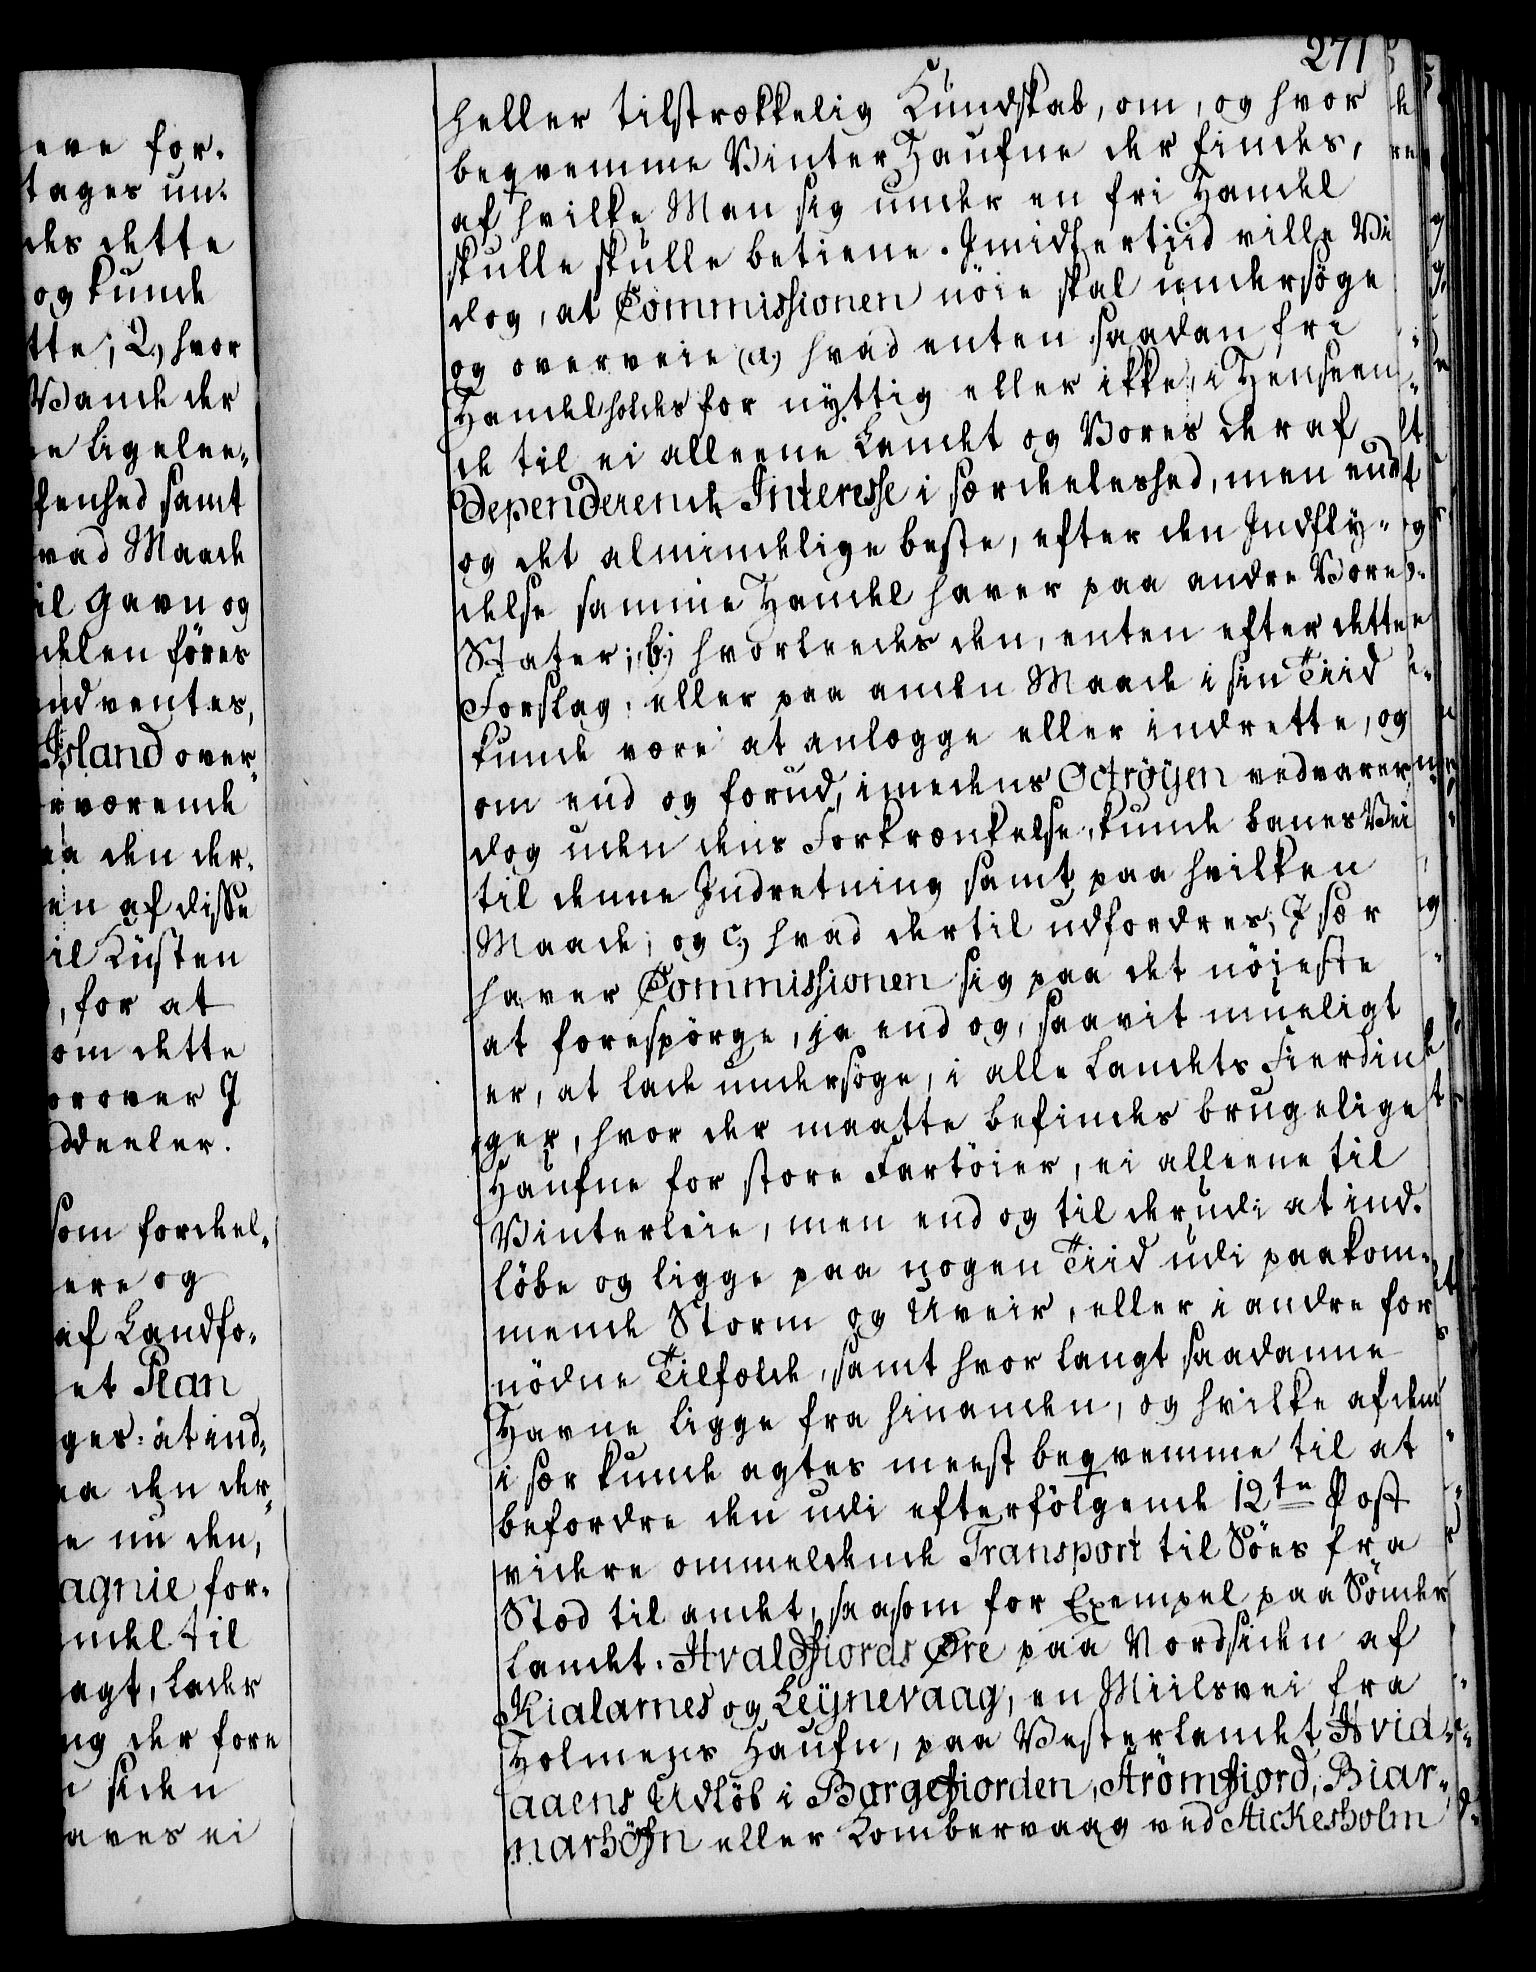 271
eve for-
tages un-
des dette
og kunde
tte; 2.) hvor
Vande der
ne ligelee-
fenhed samt
vad Maade
il Gavn og
delen föres
nd ventes,
Island over-
rværende
aa den der-
en af disse
il Küsten
, for at
om dette
orover I
ddeeler.
som fordel-
ere og
af Landfo-
et Plan
ges: at ind-
aa den der-
e nu den,
agnie for-
ndel til
agt, lader
ng der fore
siden
aves ei
heller tilstrækkelig Kundskab, om, og hvor
beqvemme Vinter Haufne der findes,
af hvilke Man sig under en fri Handel
skulle skulle betiene. Imidlertiid ville Vi
dog, at Commissionen nöie skal undersöge
og overveie (a.) hvad enten saadan fri
Handel holdes for nyttig eller ikke, i Henseen-
de til ei alleene Landet og Vores deraf
Dependerende Interesse i særdeleshed, men end
og det almindelige beste, efter den Indfly-
delse samme Handel haver paa andre Vores
Stater; b.) hvorleedes den, enten efter dette
Forslag, eller paa anden Maade i sin Tiid
kunde være at anlægge eller indrette, og
om end og forud, imedens Octröyen vedvarer
dog uden dens Forkrænkelse, kunde banes Vei
til denne Indretning samt paa hvilken
Maade; og c.) hvad dertil udfordres; I sær
haver Commissionen sig paa det nöjeste
at forespörge, ja end og, saavit mueligt
er, at lade undersöge, i alle Landets Fierdin
ger, hvor der maatte befindes brugelige
Haufne for store Fartöier, ei alleene til
Vinterleie, men end og til derudi at ind-
löbe og ligge paa nogen Tiid udi paakom-
mende Storm og Uveir, eller i andre for
nödne Tilfælde, samt hvor langt saadanne
Havne ligge fra hinanden, og hvilke af dem
i sær kunde agtes meest beqvemme til at
befordre den udi efterfölgende 12te Post
videre ommeldende Transport til Söes fra
Stæd til andet, saasom for Exempel paa Sönder
Landet. Hvalsfiords Øre paa Nordsiden af
Kialarnes og Leynevaag, en Miilsvei fra
Holmens Haufn, paa Vesterlandet Hvid-
aaens Udlöb i Borgefiorden, Strömfiord, Biar-
narhöfn eller Kombervaag ved Stickesholm